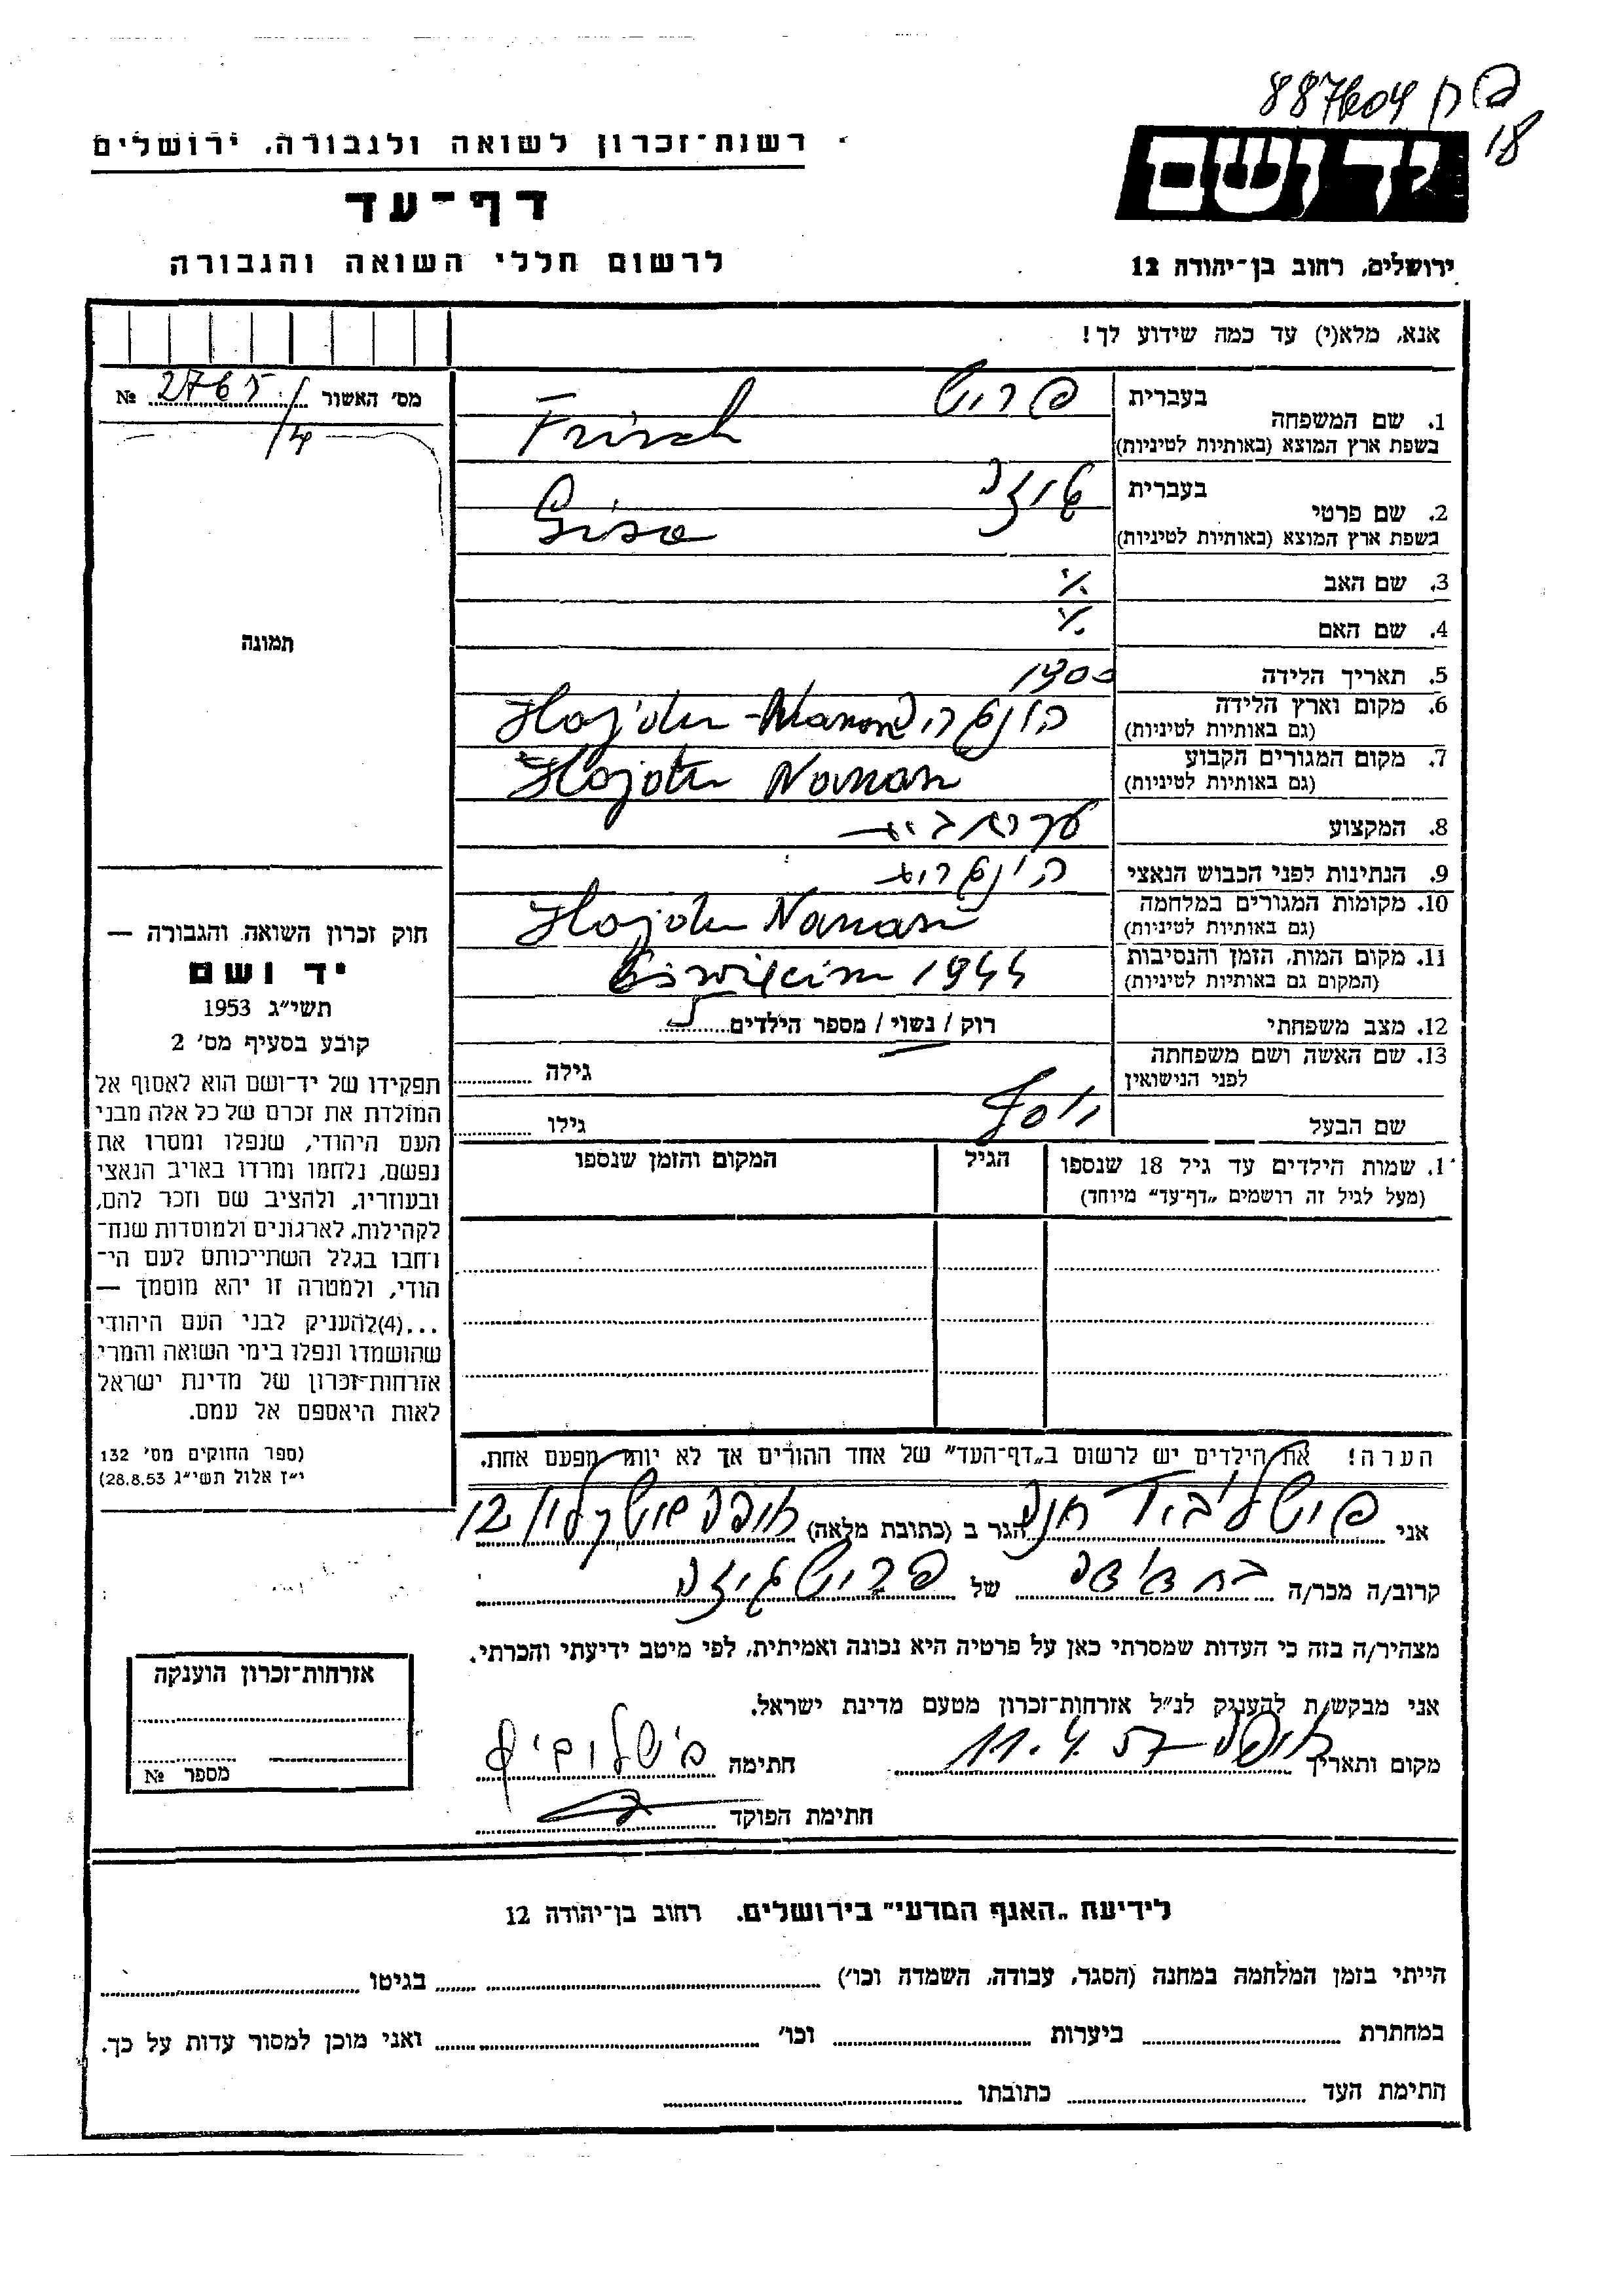 887604 ח פ
18
יד ושם
ירושלים, רחוב בן־יהודה 12
רשות־זכרון לשואה ולגבורה, ירושלים
דף־עד
לרשום חללי השואה והגבורה
אנא, מלא(י) עד כמה שידוע לך!
מס' האשור 2765 №
בעברית פריש
1. שם המשפחה
בשפת ארץ המוצא (באותיות לטיניות) Frisch
בעברית גיזה
2. שם פרטי
בשפת ארץ המוצא (באותיות לטיניות) Gisa
3. שם האב ./.
4. שם האם ./.
5. תאריך הלידה 1900
6. מקום וארץ הלידה הונגריה Hajdu-
(גם באותיות לטיניות)
7. מקום המגורים הקבוע Hajdu
(גם באותיות לטיניות)
8. המקצוע עקרת בית
9. הנתינות לפני הכבוש הנאצי הונגרית
10. מקומות המגורים במלחמה Hajdu
(גם באותיות לטיניות)
11. מקום המות, הזמן והנסיבות 1944
(המקום גם באותיות לטיניות)
12. מצב משפחתי רוק / נשוי / מספר הילדים 5
13. שם האשה ושם משפחתה
לפני הנישואין גילה
שם הבעל יוסף גילו
1. שמות הילדים עד גיל 18 שנספו הגיל המקום והזמן שנספו
(מעל לגיל זה רושמים „דף־עד" מיוחד)
תמונה
חוק זכרון השואה והגבורה —
יד ושם
תשי"ג 1953
קובע בסעיף מס' 2
תפקידו של יד־ושם הוא לאסוף אל
המולדת את זכרם של כל אלה מבני
העם היהודי, שנפלו ומסרו את
נפשם, נלחמו ומרדו באויב הנאצי
ובעוזריו, ולהציב שם וזכר להם,
לקהילות, לארגונים ולמוסדות שנח־
רחבו בגלל השתייכותם לעם הי־
הודי, ולמטרה זו יהא מוסמך —
...(4)להעניק לבני העם היהודי
שהושמדו ונפלו בימי השואה והמרי
אזרחות־זכרון של מדינת ישראל
לאות היאספם אל עמם.
(ספר החוקים מס' 132
י"ז אלול תשי"ג 28.8.53)
הערה! את הילדים יש לרשום ב„דף־העד" של אחד ההורים אך לא יותר מפעם אחת.
אני חנה הגר ב (כתובת מלאה) חיפה 12
קרוב/ה מכר/ה של פריש גיזה
מצהיר/ה בזה כי העדות שמסרתי כאן על פרטיה היא נכונה ואמיתית, לפי מיטב ידיעתי והכרתי.
אני מבקש/ת להעניק לנ"ל אזרחות־זכרון מטעם מדינת ישראל.
מקום ותאריך חיפה 11.4.57 חתימה
חתימת הפוקד
אזרחות־זכרון הוענקה
מספר №
לידיעת „האגף המדעי" בירושלים. רחוב בן־יהודה 12
הייתי בזמן המלחמה במחנה (הסגר, עבודה, השמדה וכו') בגיטו
במחתרת ביערות וכו' ואני מוכן למסור עדות על כך.
חתימת העד כתובתו